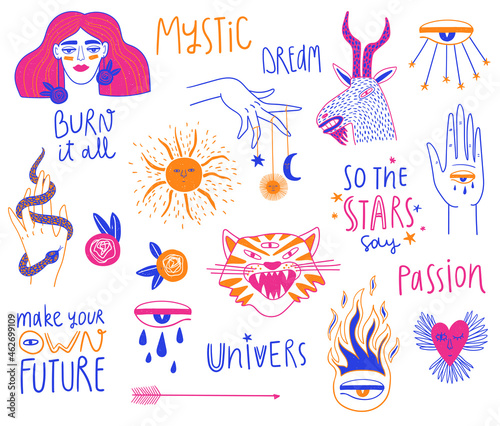 MYSTIC
DREAM
BURN
it all
SO THE
STARS
say
PASSION
make your
OWN
FUTURE
UNIVERS
Adobe Stock | #462699109